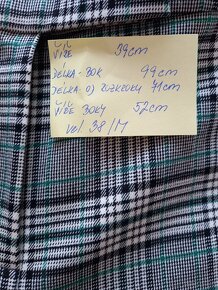 ŠÍŘE 39cm
DÉLKA-BOK 99cm
DELKA OD ROZKROKU 71cm
ŠÍŘE BOKY 52cm
vel 38/M